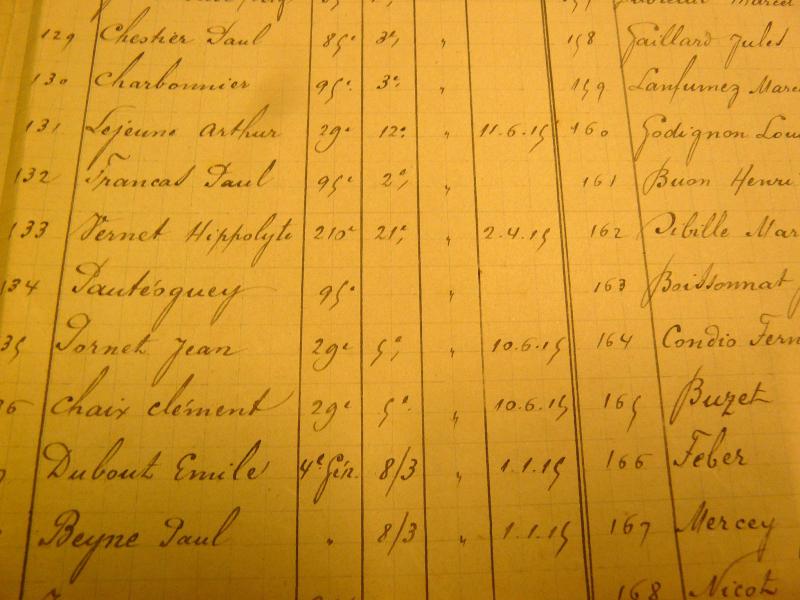 129 Chestier Paul 85e 3e, " 158 Gaillard Jules
130 Charbonnier 95e 3e, " 159 Lanfumez Marc
131 Lejeune Arthur 29e 12e " 11.6.15 160 Godignon Lou
132 Francas Paul 95e 2e, " 161 Buon Henri
133 Vernet Hippolyte 210e 21e, " 2.4.15 162 Sibille Mar
134 95e " 163 Boissonnat
35 Pornet Jean 29e 5e, " 10.6.15 164 Condio Fern
36 Chaix Clément 29e 5e " 10.6.15 165 Buzet
Dubout Emile 4e Gén. 8/3 " 1.1.15 166 Feber
Beyne Paul " 8/3 " 1.1.15 167 Mercey
168 Nicot